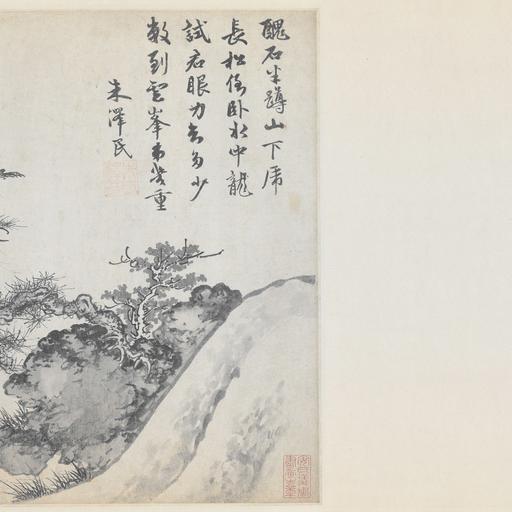 醜石半蹲山下虎
長松倒臥水中龍
試君眼力知多少
數到雲峯第幾重
朱澤民